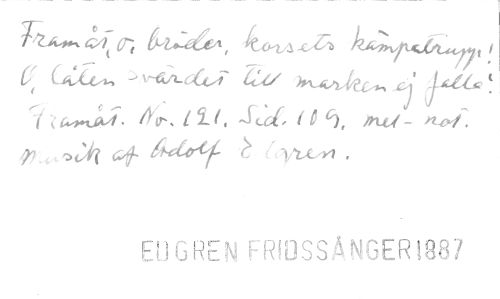 Framåt, o, bröder, korsets kämpatrupp!
O, låten svärdet till marken ej falla!
Framåt. No. 121. Sid. 109. mel-not.
Musik af Adolf Edgren.
EDGREN FRIDSSÅNGER 1887